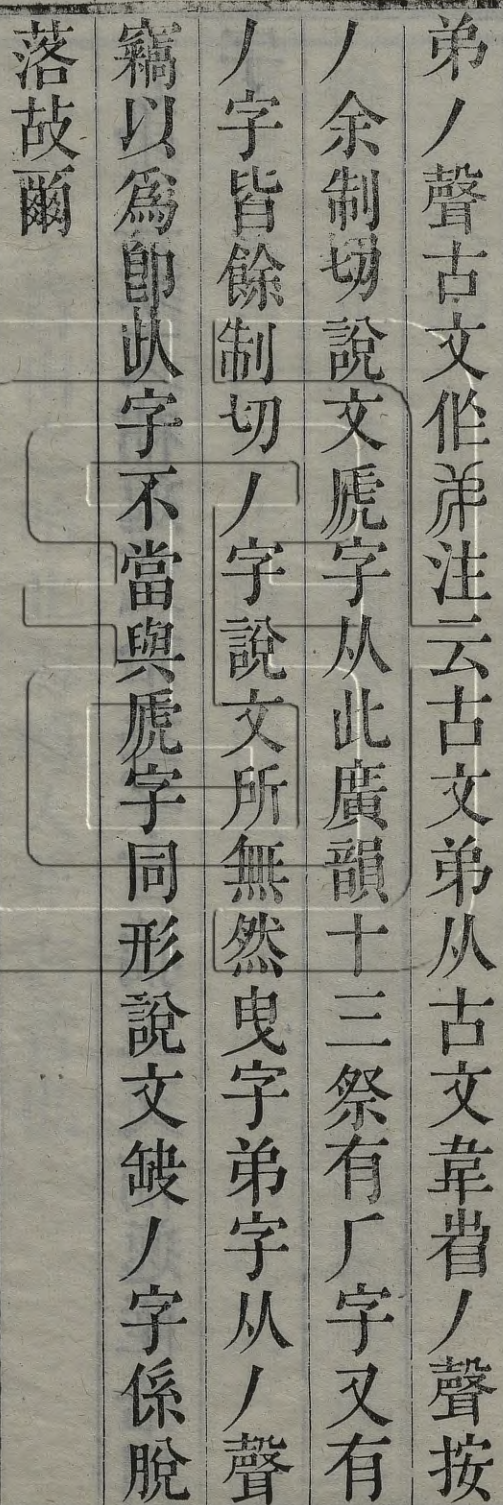 弟丿聲古文作𠂖注云古文弟从古文韋省丿聲按
丿余制切說文虒字从此廣韻十三祭有𠂆字又有
丿字皆餘制切丿字說文所無然曳字弟字从丿聲
竊以為卽此字不當與虒字同形說文缺丿字係脫
落故爾